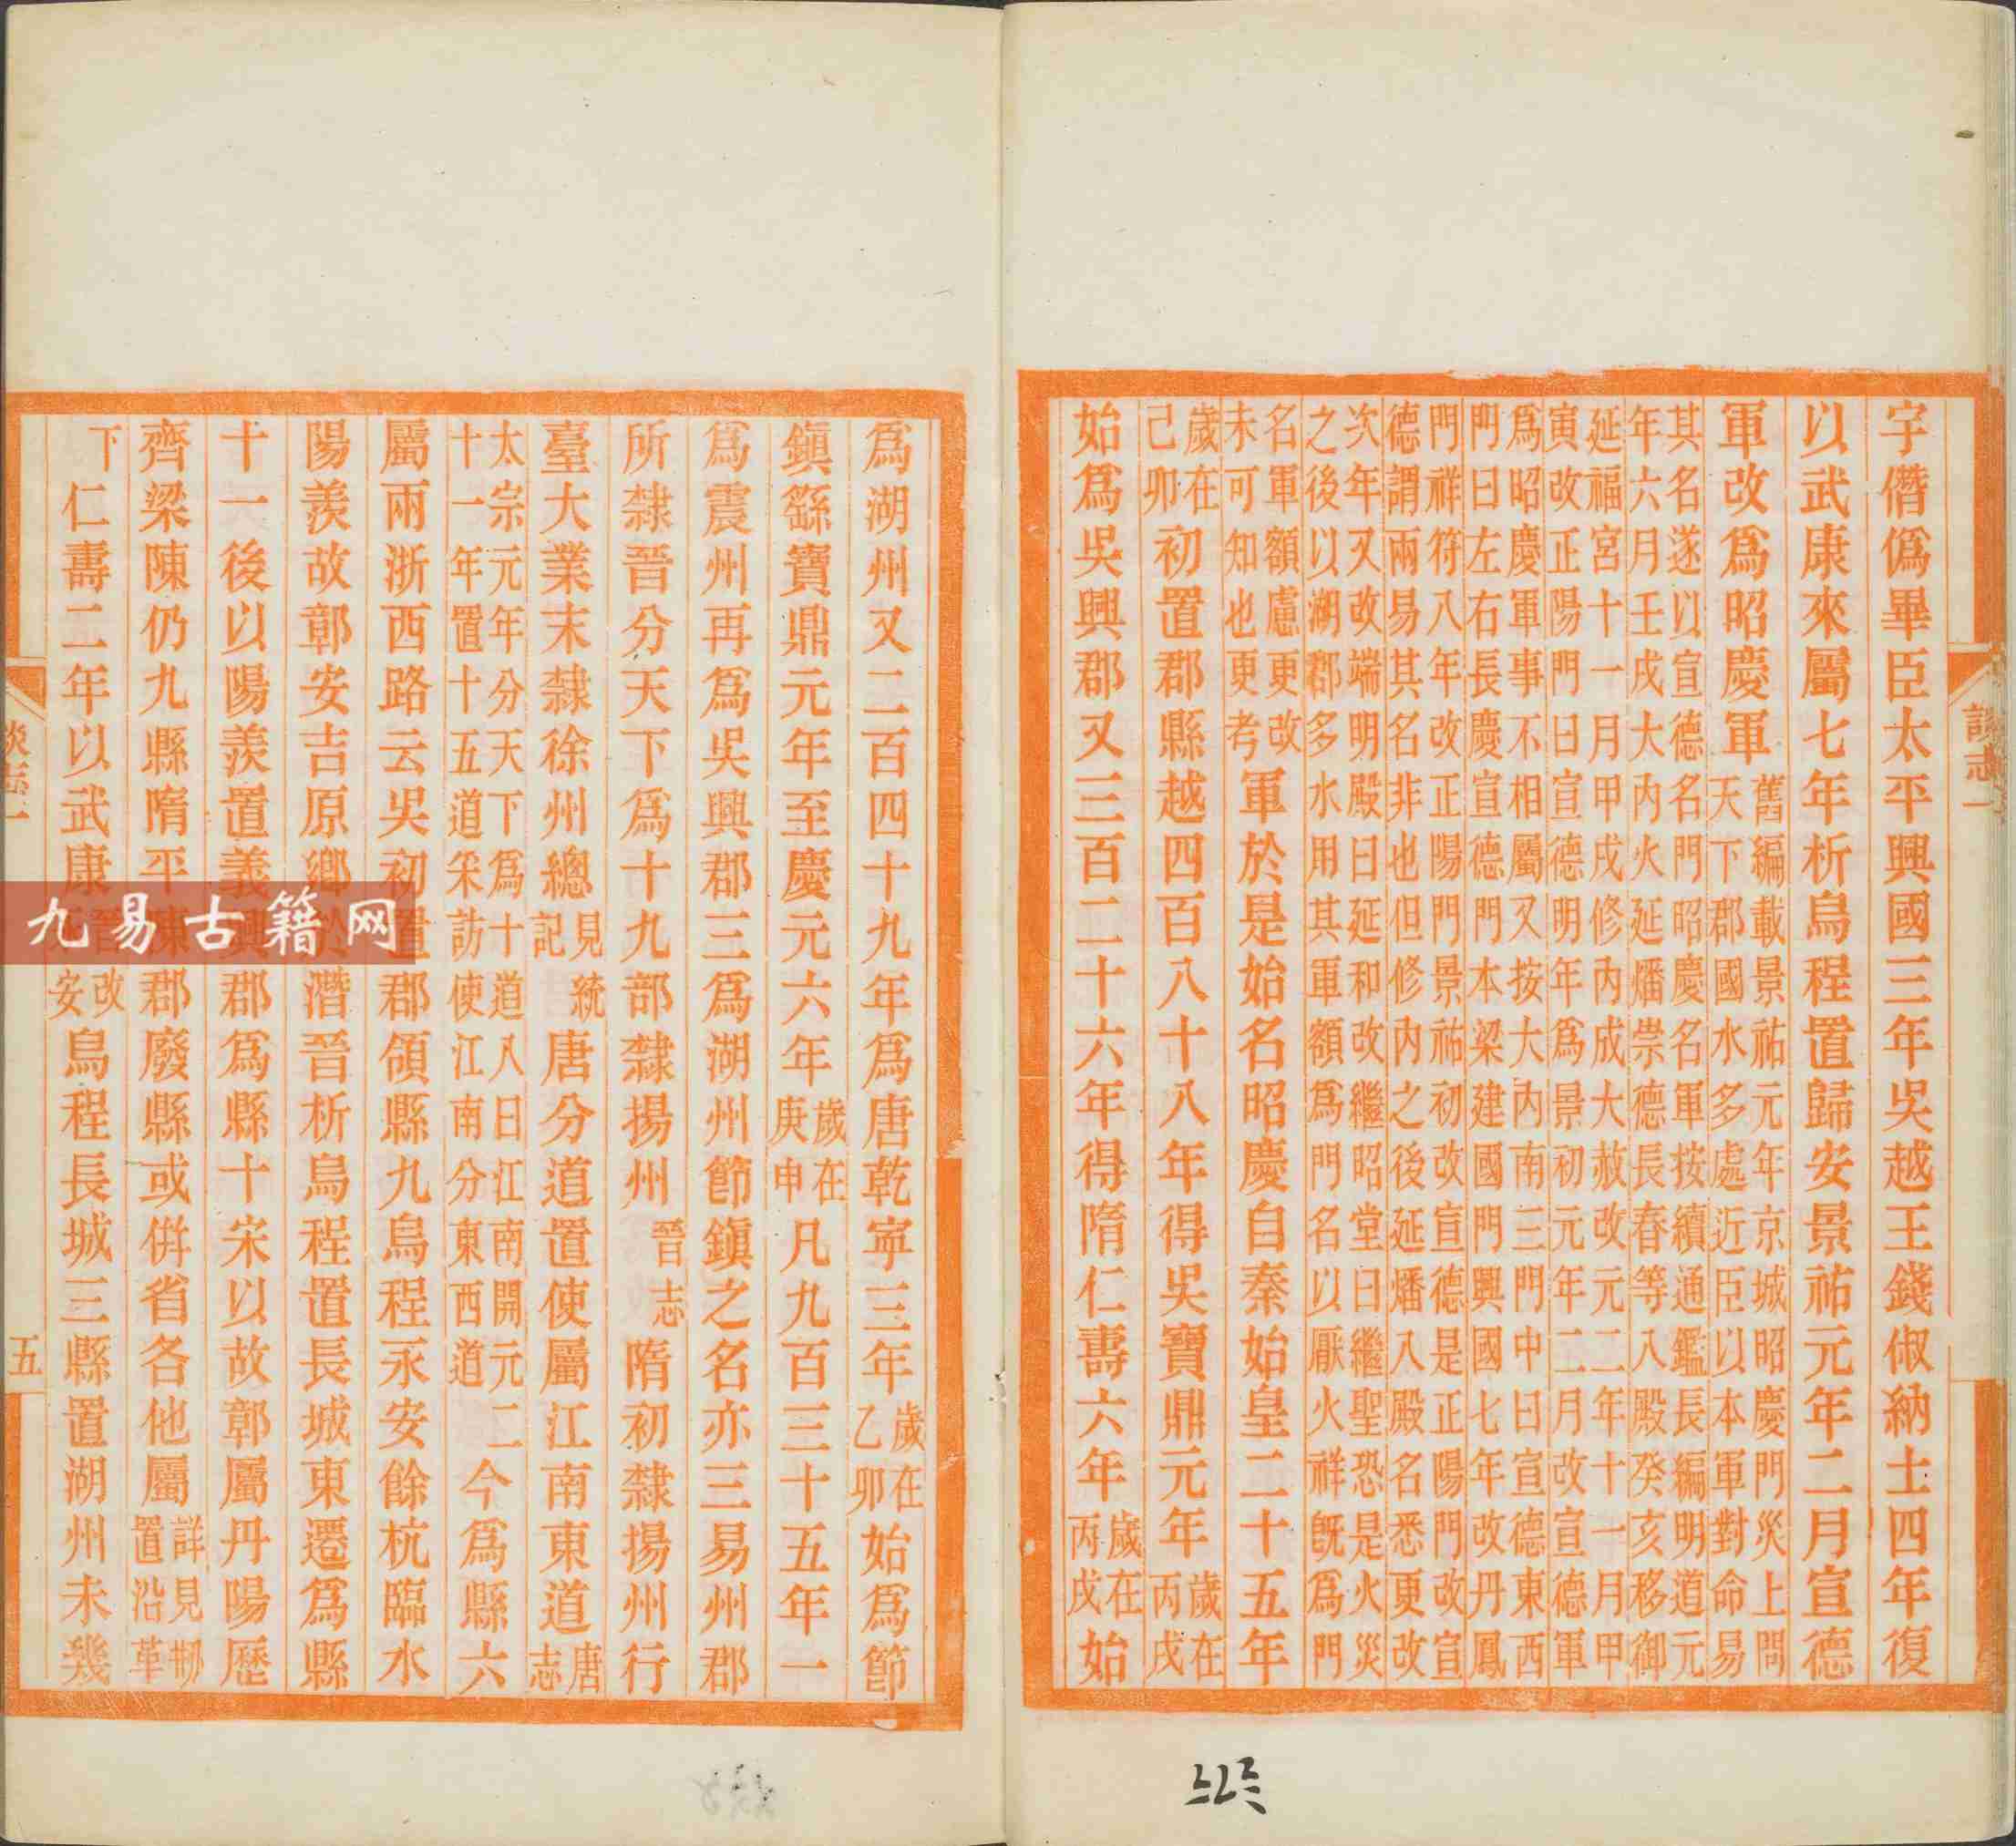 宇僭僞畢臣太平興國三年吳越王錢俶納土四年復
以武康來屬七年析烏程置歸安景祐元年二月宣德
軍改爲昭慶軍
舊編載景祐元年京城昭慶門災上問
天下郡國水多處近臣以本軍對命易
其名遂以宣德名門昭慶名軍按續通鑑長編明道元
年六月壬戌大內火延燔崇德長春等八殿癸亥移御
延福宮十一月甲戌修內成大赦改元二年十一月甲
寅改正陽門曰宣德明年爲景初元年二月改宣德軍
爲昭慶軍事不相屬又按大內南三門中曰宣德東西
門曰左右長慶宣德門本梁建國門興國七年改丹鳳
門祥符八年改正陽門景祐初改宣德是正陽門改宣
德謂兩易其名非也但修內之後延燔入殿名悉更改
次年又改端明殿曰延和改繼昭堂曰繼聖恐是火災
之後以湖郡多水用其軍額爲門名以厭火祥旣爲門
名軍額慮更改
未可知也更考
軍於是始名昭慶自秦始皇二十五年
歲在己卯初置郡縣越四百八十八年得吳寶鼎元年歲在丙戌
始爲吳興郡又三百二十六年得隋仁壽六年歲在丙戌始
談志一
爲湖州又二百四十九年爲唐乾寧三年歲在乙卯始爲節
鎮繇寶鼎元年至慶元六年歲在庚申凡九百三十五年一
爲震州再爲吳興郡三爲湖州節鎮之名亦三易州郡
所隸晉分天下爲十九部隸揚州晉志隋初隸揚州行
臺大業末隸徐州總見統記唐分道置使屬江南東道唐志
太宗元年分天下爲十道八曰江南開元二
十一年置十五道采訪使江南分東西道
今爲縣六
屬兩浙西路云吳初置郡領縣九烏程永安餘杭臨水
陽羨故鄣安吉原鄉於潛晉析烏程置長城東遷爲縣
十一後以陽羨置義興郡爲縣十宋以故鄣屬丹陽歷
齊梁陳仍九縣隋平陳郡廢縣或併省各他屬詳見刱置沿革
下仁壽二年以武康晉改安烏程長城三縣置湖州未幾
談志一
五
九易古籍网